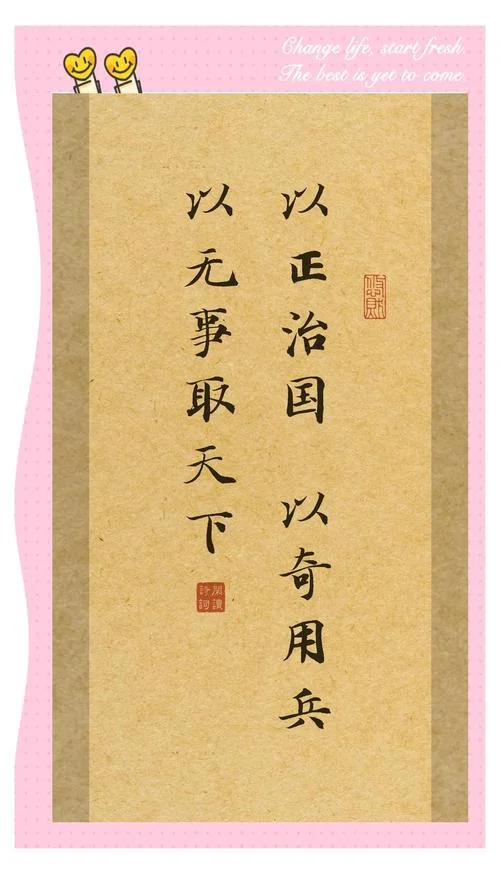 Change life, start fresh.
The best is yet to come.
以正治国 以奇用兵
以无事取天下
閑讀
詩詞